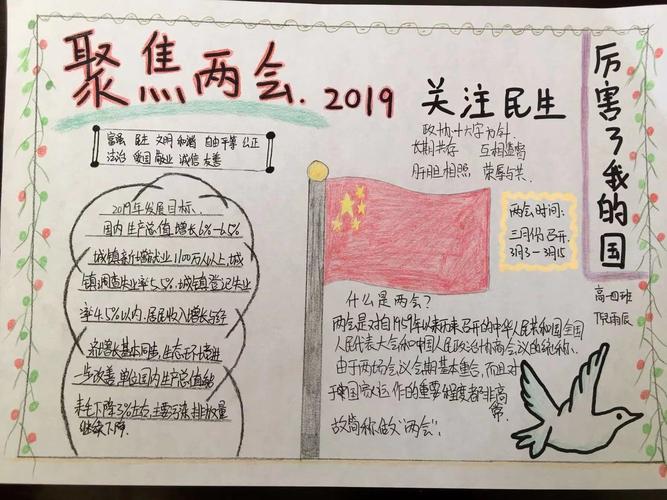 聚焦两会.2019
关注民生
富强 民主 文明 和谐 自由平等 公正
法治 爱国 敬业 诚信 友善
2019年发展目标、
国内生产总值增长6%-6.5%
城镇新增就业1100万人以上,城
镇调查失业率5.5%.城镇登记失业
率4.5%以内.居民收入增长与经
济增长基本同步,生态环境进一
步改善,单位国内生产总值能
耗下降3%左右,主要污染排放量
继续下降.
政协十六字方针.
长期共存 互相监督
肝胆相照 荣辱与共.
两会时间:
三月份召开.
3月3-3月15
什么是两会?
两会是对自1959年以来历来召开的中华人民共和国全国
人民代表大会和中国人民政治协商会议的统称.
由于两场会议会期基本重合,而且对
于中国家运作的重要程度都非高
常.
故简称做"两会".
厉害了我的国
高一四班